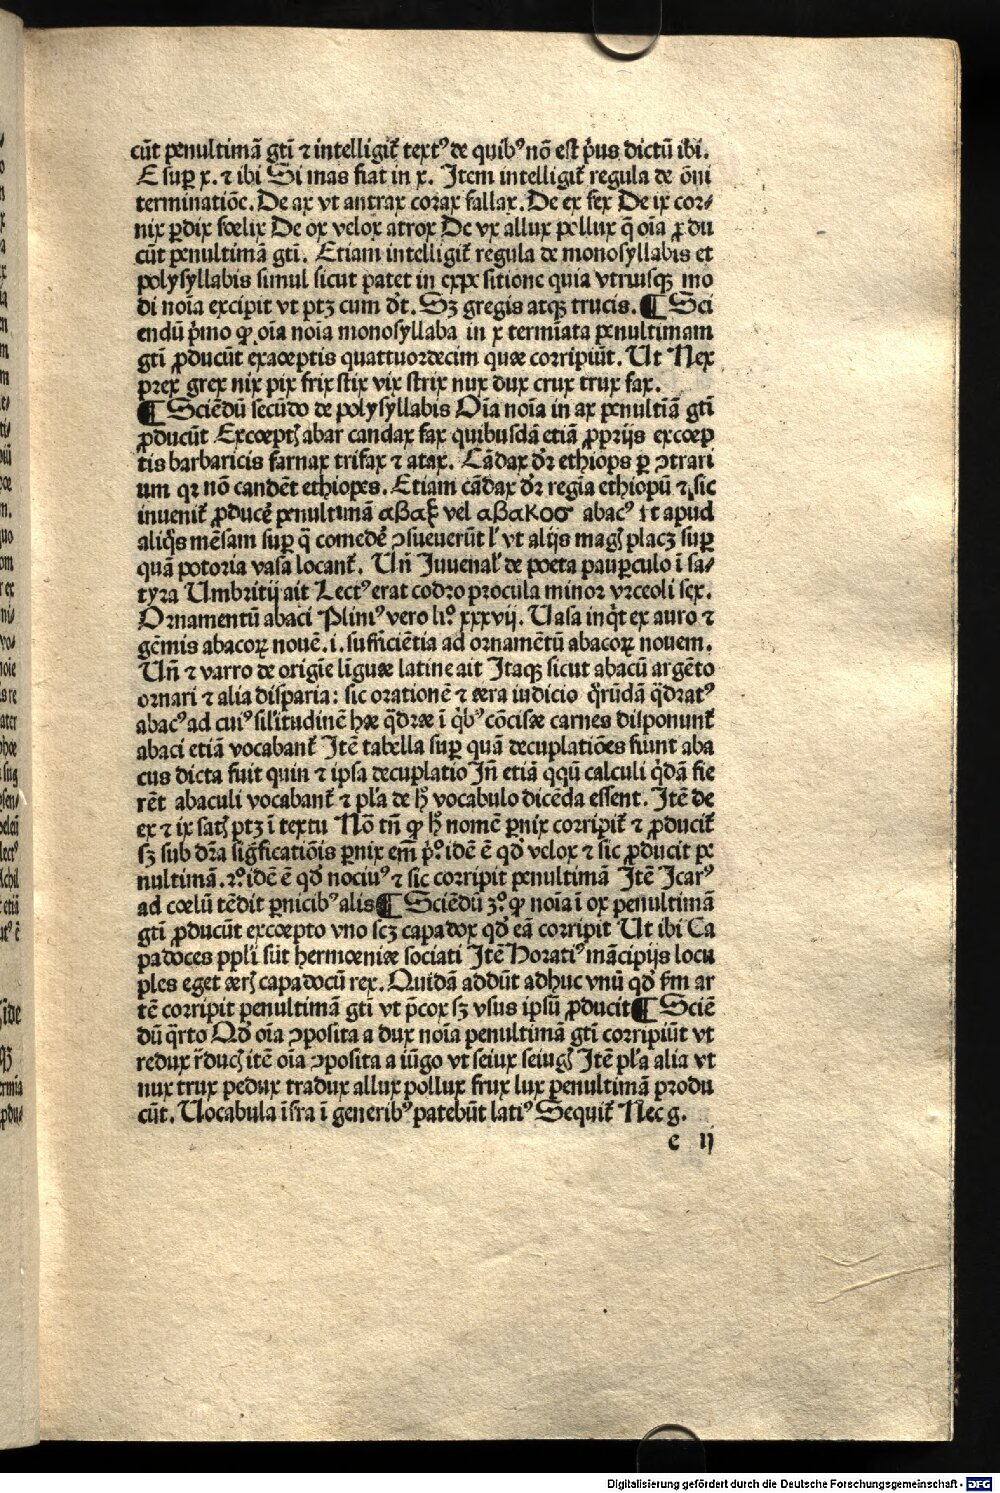 cūt penultimā gtī ⁊ intelligit᷑ textꝰ de quibꝰ nō est p̄us dictū ibi.
E suꝑ x. ⁊ ibi Si mas fiat in x. Item intelligit᷑ regula de ōni
terminatiōe. De ax vt antrax corax fallax. De ex fex De ix cor⸗
nix ꝑdix fœlix De ox velox atrox De vx allux pollux q̄ oīa ꝓdu
cūt penultimā gtī. Etiam intelligit᷑ regula de monosyllabis et
polysyllabis simul sicut patet in expositione quia vtriusqꝫ mo
di noīa excipit vt ptꝫ cum dr̄t. Sꝫ gregis atqꝫ trucis. ¶ Sci
endū p̄mo ꝙ oīa noīa monosyllaba in x termīata penultimam
gtī ꝓducūt exaceptis quattuordecim quæ corripiūt. Ut Nex
prex grex nix pix frix stix vix strix nux dux crux trux fax.
¶ Sciēdū secūdo de polysyllabis Oīa noīa in ax penultīā gtī
ꝓducūt Excœptꝭ abax candax fax quibusdā etiā ꝓprijs excœp
tis barbaricis farnax trifax ⁊ atax. Cādax dr̄ ethiops ꝑ ↄtrari
um qꝛ nō candēt ethiopes. Etiam cādax dr̄ regīa ethiopū ⁊ sic
inuenit᷑ ꝓducēꝭ penultimā αβαξ vel αβακοσ abacꝰ et apud
aliq̄s mēsam suꝑ q̄ comedeꝭ ↄsueuerūt lꝭ vt alijs magꝭ placꝫ suꝑ
quā potoria vasa locant᷑. Un̄ Juuenalꝭ de poeta pauꝑculo ī sa⸗
tyra Umbritij ait Lectꝰ erat codro procula minor vrceoli sex.
Ornamentū abaci Pliniꝰ vero li.º xxxvij. Uasa inq̇t ex auro ⁊
gēmis abacoꝝ nouē .i. sufficiētia ad ornamētū abacoꝝ nouem.
Un̄ ⁊ varro de origīe līguæ latine ait Itaqꝫ sicut abacū argēto
ornari ⁊ alia disparia: sic orationē ⁊ æra iudicio q̄rūdā q̄dratꝰ
abacꝰ ad cuiꝰ silītudinē hæ q̄dræ ī q̇bꝰ cōcisæ carnes disponunt᷑
abaci etiā vocabant᷑ Itē tabella suꝑ quā decuplatiōes fiunt aba
cus dicta fuit quin ⁊ ipsa decuplatio In̄ etiā qqū calculi q̇dā fie
rēt abaculi vocabant᷑ ⁊ pl̄a de h̄ vocabulo dicēda essent. Itē de
ex ⁊ ix satꝭ ptꝫ ī textu Nō tn̄ ꝙ h̄ nomē ꝑnix corripit᷑ ⁊ ꝓducit᷑
sꝫ sub dr̄a sig̅ficatiōis ꝑnix em̄ p.º idē ē qd̄ velox ⁊ sic ꝓducit pe
nultimā. 2.º idē ē qd̄ nociuꝰ ⁊ sic corripit penultimā Itē Icarꝰ
ad cœlū tēdit ꝑnicibꝰ alis ¶ Sciēdū 3.º ꝙ noīa ī ox penultimā
gtī ꝓducūt excœpto vno scꝫ capadox qd̄ eā corripit Ut ibi Ca
padoces ppli sūt hermœniæ sociati Itē Horatiꝰ mācipijs locu
ples eget ærꝭ capadocū rex. Quidā addūt adhuc vnū qd̄ fm ar
tē corripit penultimā gtī vt p̄cox sꝫ vsus ipsū ꝓducit ¶ Sciē
dū q̄rto Qd̄ oīa ↄposita a dux noīa penultimā gtī corripiūt vt
redux r̄ducꝭ itē oīa ↄposita a iūgo vt seiux seiugꝭ Itē pl̄a alia vt
nux trux pedux tradux allux pollux frux lux penultimā produ
cūt. Uocabula īfra ī generibꝰ patebūt latiꝰ Sequit᷑ Nec g.
e ij
Digitalisierung gefördert durch die Deutsche Forschungsgemeinschaft - DFG